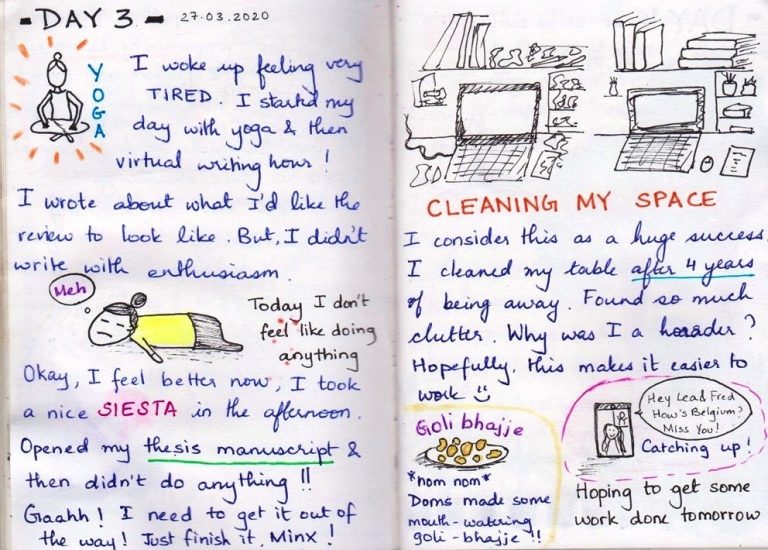 - DAY 3 -
27.03.2020
YOGA
I woke up feeling very
TIRED. I started my
day with yoga & then
virtual writing hour !
I wrote about what I'd like the
review to look like. But, I didn't
write with enthusiasm.
Meh
Today I don't
feel like doing
anything
Okay, I feel better now, I took
a nice SIESTA in the afternoon.
Opened my thesis manuscript &
then didn't do anything !!
Gaahh ! I need to get it out of
the way ! Just finish it, Minx !
CLEANING MY SPACE
I consider this as a huge success.
I cleaned my table after 4 years
of being away. Found so much
clutter. Why was I a hoarder ?
Hopefully, this makes it easier to
work
Goli bhajje
*nom nom*
Doms made some
mouth-watering
goli-bhajje !!
Hey Lead Fred
How's Belgium?
Miss You!
Catching up !
Hoping to get some
work done tomorrow